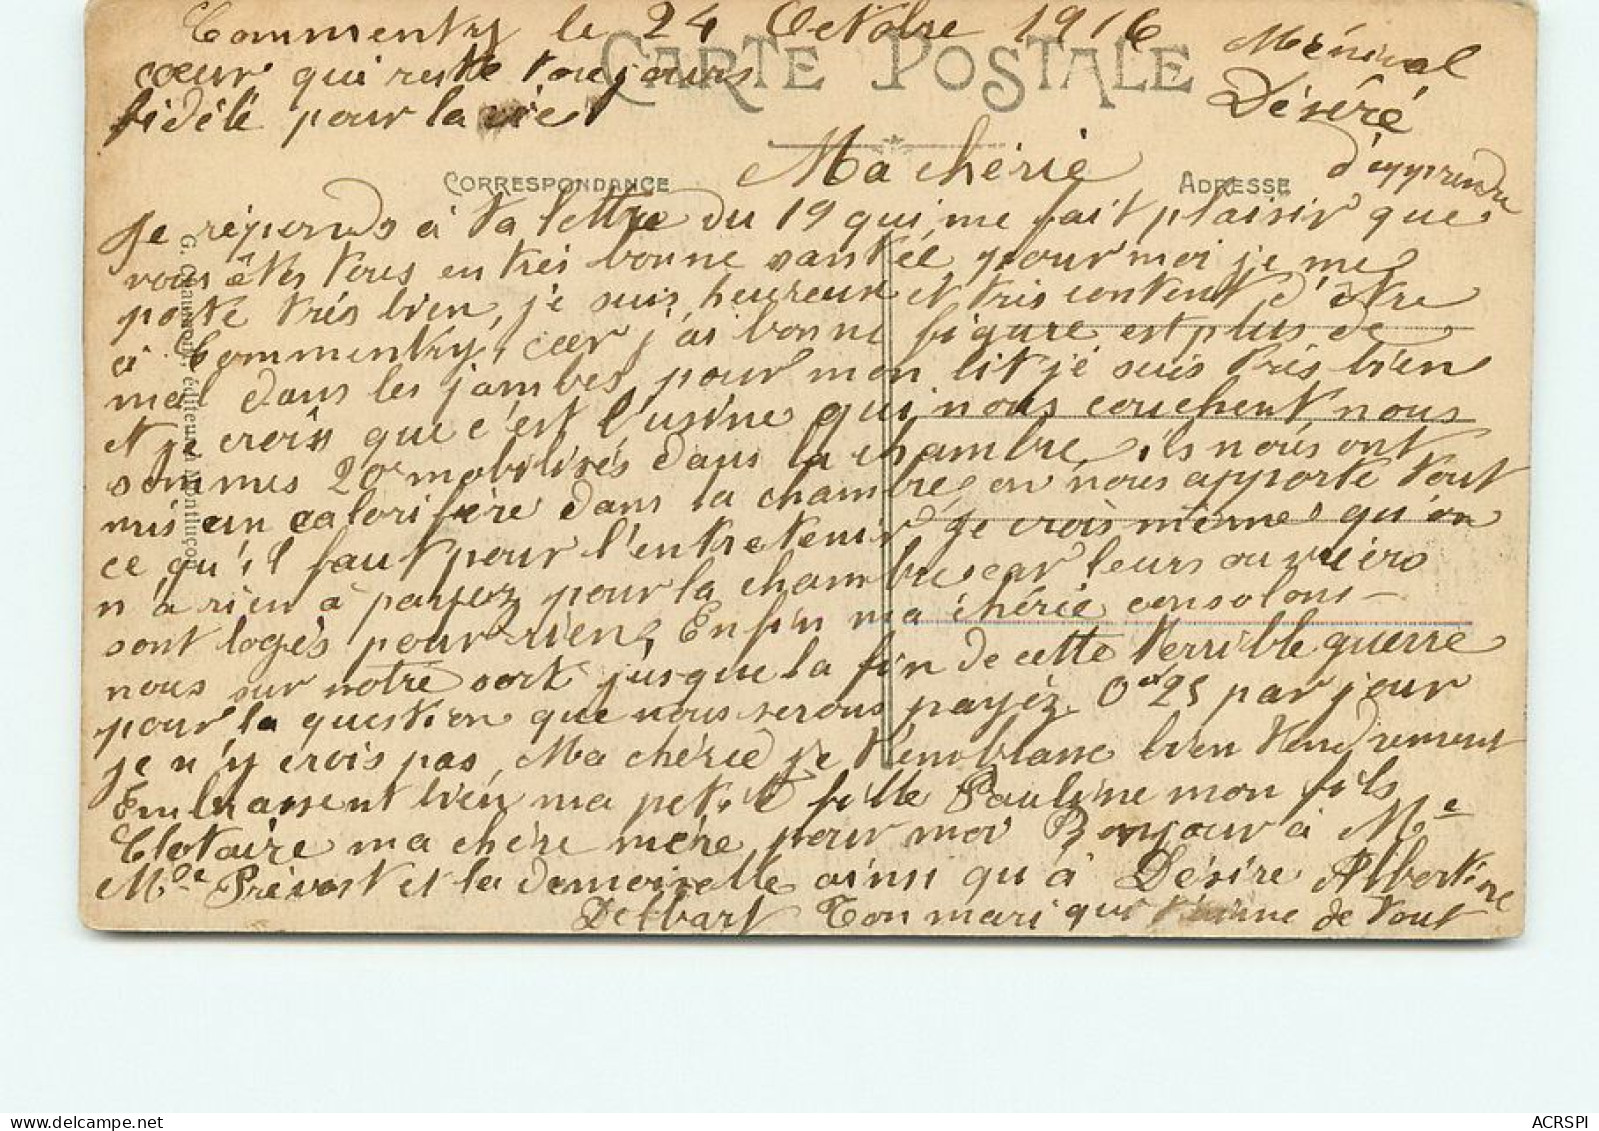 Commentry le 24 Octobre 1916
CARTE POSTALE
Ménival
Désiré
cœur qui reste toujours
fidéle pour la vie
Ma chérie
CORRESPONDANCE
ADRESSE
d'apprendre
Je réponds à ta lettre du 19 qui, me fait plaisir que
vous êtes tous en trés bonne santée pour moi je me
porte trés bien, je suis heureux et trés content d'être
à Commentry, car j'ai bonne figure est plus de
mal dans les jambes, pour mon lit je suis trés bien
et je crois que c'est l'usine qui nous couchent nous
sommes 20 mobilisés dans la chambre, ils nous ont
mis un calorifére dans la chambre, on nous apporte tout
ce qu'il faut pour l'entretenir, je crois même qu'on
n'a rien à payez pour la chambre car leurs ouvriers
sont logés pour rien, Enfin ma chérie consolons-
nous sur notre sort jusque la fin de cette terrible guerre
pour la question que nous serons payéz 0 25 par jour
je n'y crois pas, Ma chérie je t'emblasse bien tendrement
Embrassent bien ma petite fille Pauline mon fils
Clotaire ma chére mére pour moi Bonjour à Me
Mde Prévost et la demoiselle ainsi qu'à Désire Albertine
Delbart Ton mari qui t'aime de tout
G. Chaumont, éditeur à Montluçon
ACRSPI